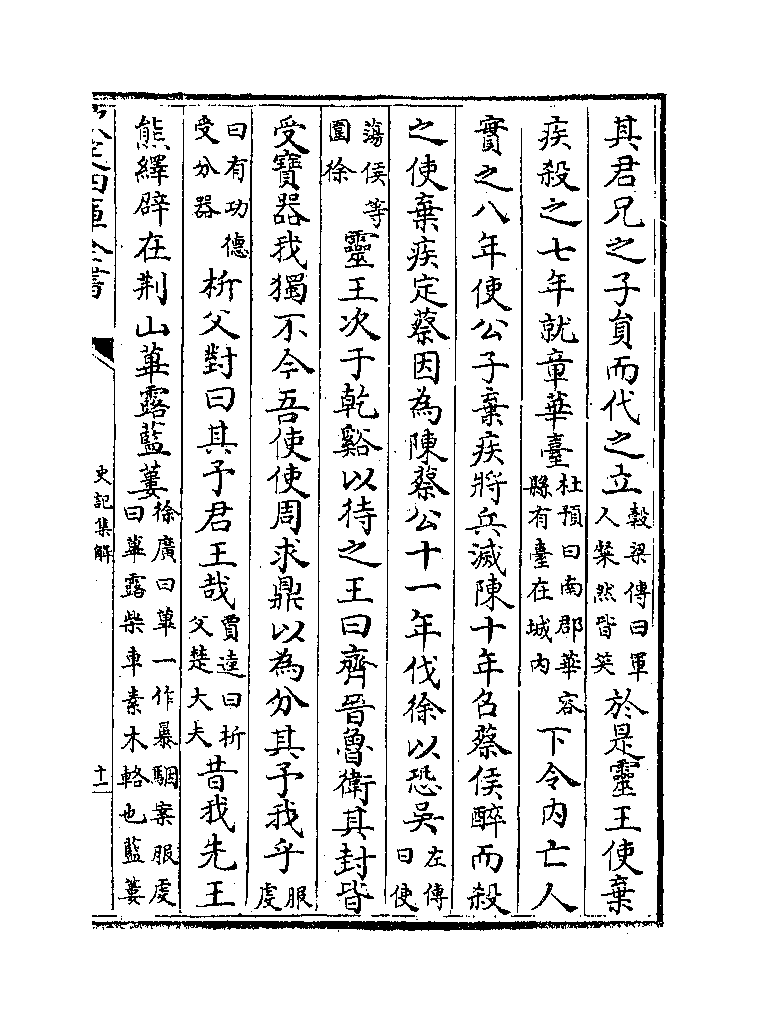 其君兄之子員而代之立穀梁傳曰軍人粲然皆笑於是靈王使棄
疾殺之七年就章華臺杜預曰南郡華容縣有臺在城内下令内亡人
實之八年使公子棄疾將兵滅陳十年召蔡侯醉而殺
之使棄疾定蔡因為陳蔡公十一年伐徐以恐吳左傳曰使
蕩侯等圍徐靈王次于乾谿以待之王曰齊晉魯衛其封皆
受寶器我獨不今吾使使周求鼎以為分其予我乎服虔
曰有功德受分器析父對曰其予君王哉賈逵曰析父楚大夫昔我先王
熊繹辟在荆山蓽露藍蔞徐廣曰蓽一作暴駰案服虔曰蓽露柴車素木輅也藍蔞
欽定四庫全書
史記集解
十一